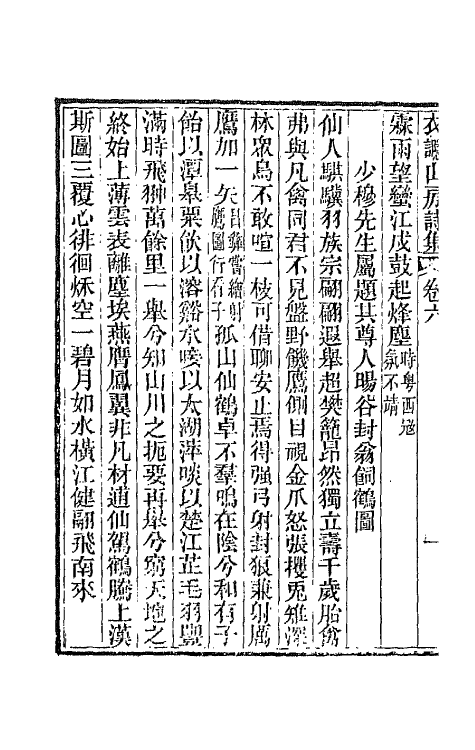 衣讔山房詩集 卷六 一
霖雨望蠻江戍鼓起烽塵時粵西寇氛不靖
少穆先生屬題其尊人暘谷封翁飼鶴圖
仙人騏驥羽族宗翩翩遐舉超樊籠昂然獨立壽千歲胎禽
弗與凡禽同君不見盤野饑鷹側目視金爪怒張攫兎雉深
林眾鳥不敢喧一枝可借聊安止焉得強弓射封狼兼射厲
鷹加一矢昌彝嘗繪射鷹圖行看子孤山仙鶴卓不羣鳴在陰兮和有子
飴以潭皋粟飲以溶谿水唼以太湖萍啖以楚江芷毛羽豐
滿時飛翀萬餘里一舉兮知山川之扼要再舉兮窮天地之
終始上薄雲表離塵埃燕膺鳳翼非凡材逋仙駕鶴騰上漢
斯圖三覆心徘徊秌空一碧月如水橫江健翮飛南來